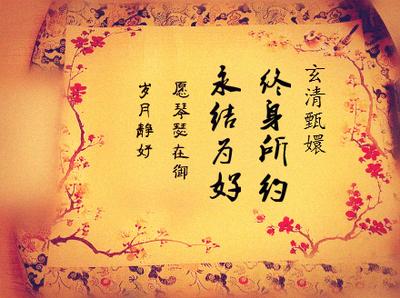 玄清甄嬛
终身所约
永结为好
愿琴瑟在御
岁月静好